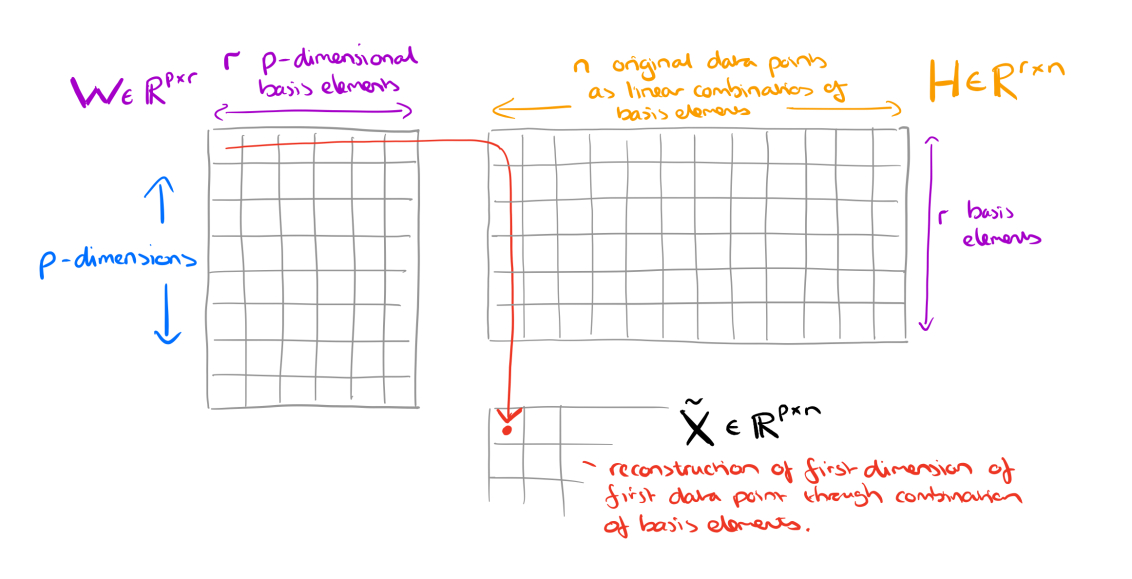 W ∈ ℝ^{p×r}
r p-dimensional
basis elements
n original data points
as linear combinations of
basis elements
H ∈ ℝ^{r×n}
p-dimensions
r basis
elements
X̃ ∈ ℝ^{p×n}
~ reconstruction of first dimension of
first data point through combination
of basis elements.